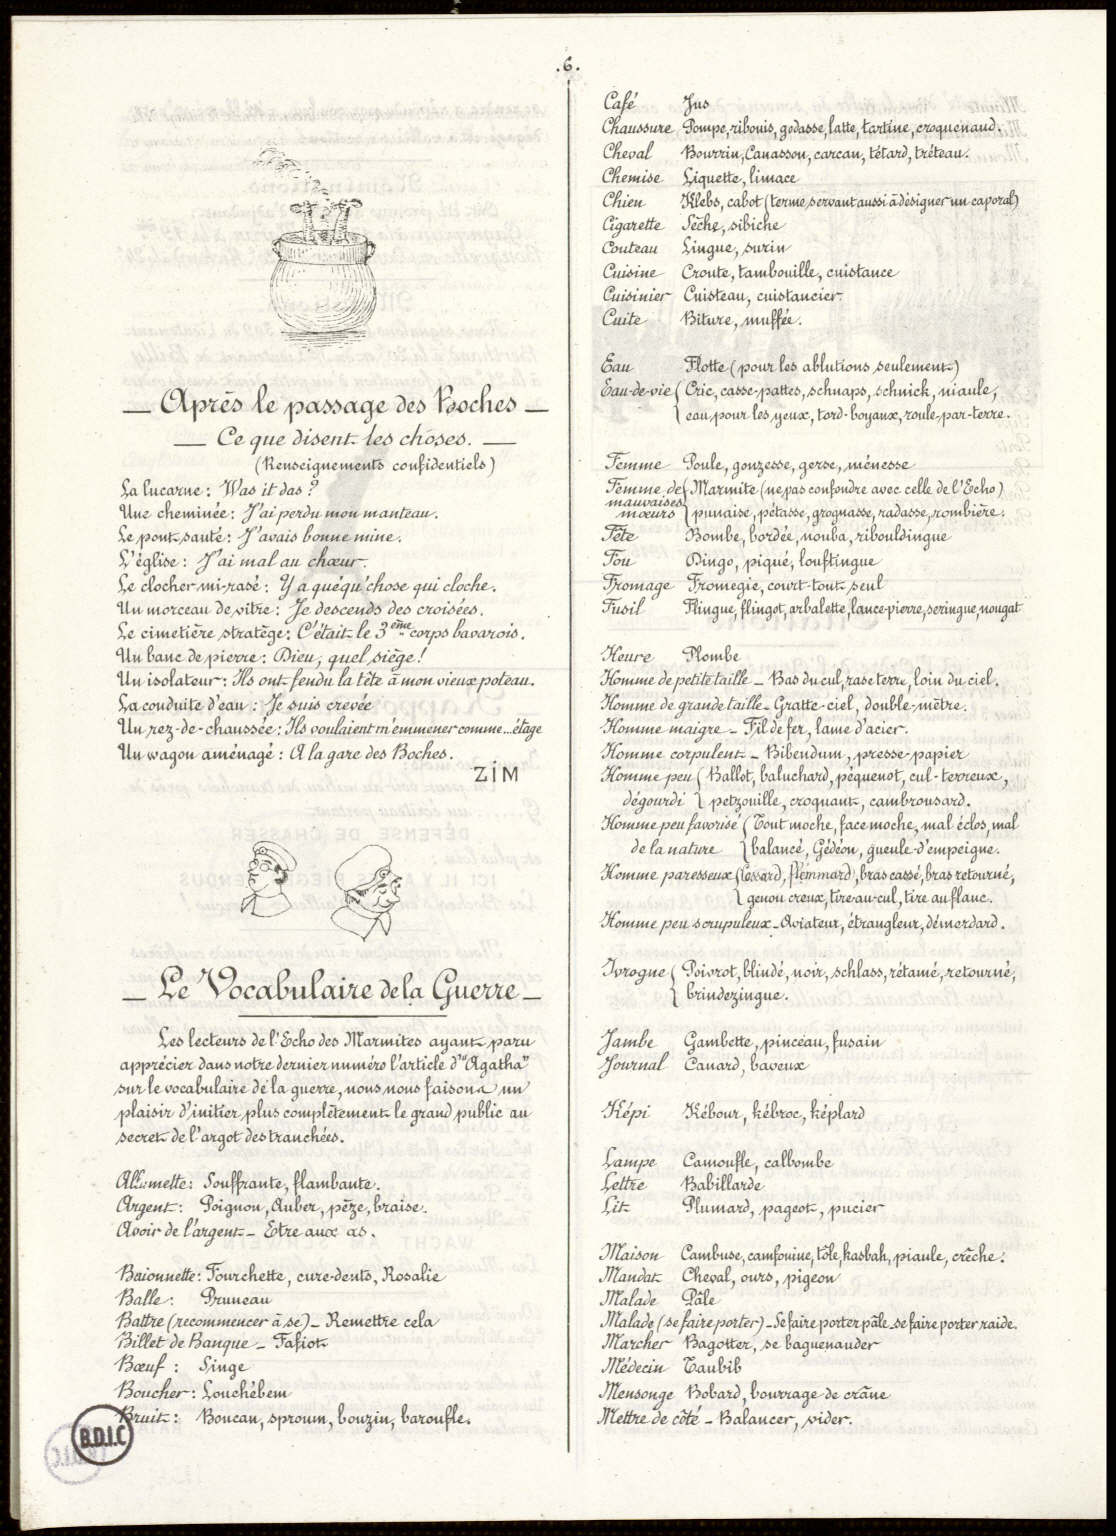 .6.
— Après le passage des Boches —
— Ce que disent les choses. —
(Renseignements confidentiels)
La lucarne : Was it das ?
Une cheminée : J'ai perdu mon manteau.
Le pont sauté : J'avais bonne mine.
L'église : J'ai mal au chœur.
Le clocher mi-rasé : Y a quéqu'chose qui cloche.
Un morceau de vitre : Je descends des croisées.
Le cimetière stratège : C'était le 3ème corps bavarois.
Un banc de pierre : Dieu, quel siège !
Un isolateur : Ils ont fendu la tête à mon vieux poteau.
La conduite d'eau : Je suis crevée
Un rez-de-chaussée : Ils voulaient m'emmener comme... étage
Un wagon aménagé : A la gare des Boches.
ZIM
— Le Vocabulaire de la Guerre —
Les lecteurs de l'Echo des Marmites ayant paru
apprécier dans notre dernier numéro l'article d'"Agatha"
sur le vocabulaire de la guerre, nous nous faisons un
plaisir d'initier plus complètement le grand public au
secret de l'argot des tranchées.
Allumette : Souffrante, flambante.
Argent : Poignon, Auber, pèze, braise.
Avoir de l'argent — Etre aux as.
Baionnette : Fourchette, cure-dents, Rosalie
Balle : Pruneau
Battre (recommencer à se) — Remettre cela
Billet de Banque — Fafiot
Bœuf : Singe
Boucher : Louchébem
Bruit : Boucan, sproum, bouzin, baroufle.
B.D.I.C
Café Jus
Chaussure Pompe, ribouis, godasse, latte, tartine, croquenaud.
Cheval Bourrin, Canasson, carcan, têtard, tréteau.
Chemise Liquette, limace
Chien Klebs, cabot (terme servant aussi à désigner un caporal)
Cigarette Sèche, sibiche
Couteau Lingue, surin
Cuisine Croute, tambouille, cuistance
Cuisinier Cuisteau, cuistancier.
Cuite Biture, muffée.
Eau Flotte (pour les ablutions seulement)
Eau-de-vie { Cric, casse-pattes, schnaps, schnick, niaule,
eau pour les yeux, tord-boyaux, roule-par-terre.
Femme Poule, gonzesse, gerse, ménesse
Femme de mauvaises mœurs { Marmite (ne pas confondre avec celle de l'Echo)
punaise, pétasse, grognasse, radasse, rombière.
Fête Bombe, bordée, nouba, ribouldingue
Fou Dingo, piqué, louftingue
Fromage Fromegie, court-tout-seul
Fusil Flingue, flingot, arbalette, lance-pierre, seringue, nougat
Heure Plombe
Homme de petite taille — Bas du cul, rase terre, loin du ciel.
Homme de grande taille — Gratte-ciel, double-mètre.
Homme maigre — Fil de fer, lame d'acier.
Homme corpulent — Bibendum, presse-papier
Homme peu { Ballot, baluchard, péquenot, cul-terreux,
dégourdi petzouille, croquant, cambrousard.
Homme peu favorisé { Tout moche, face moche, mal éclos, mal
de la nature balancé, Gédéon, gueule d'empeigne.
Homme paresseux { Cossard, flemmard, bras cassé, bras retourné,
genou creux, tire-au-cul, tire au flanc.
Homme peu scrupuleux — Aviateur, étrangleur, démerdard.
Ivrogne { Poivrot, blindé, noir, schlass, rétamé, retourné,
brindezingue.
Jambe Gambette, pinceau, fusain
Journal Canard, baveux
Képi Kébour, kébroc, képlard
Lampe Camoufle, calbombe
Lettre Babillarde
Lit Plumard, pageot, pucier
Maison Cambuse, camfouine, tôle, kasbah, piaule, crêche.
Mandat Cheval, ours, pigeon
Malade Pâle
Malade (se faire porter) — Se faire porter pâle — se faire porter raide.
Marcher Bagotter, se baguenauder
Médecin Taubib
Mensonge Bobard, bourrage de crâne
Mettre de côté — Balancer, vider.